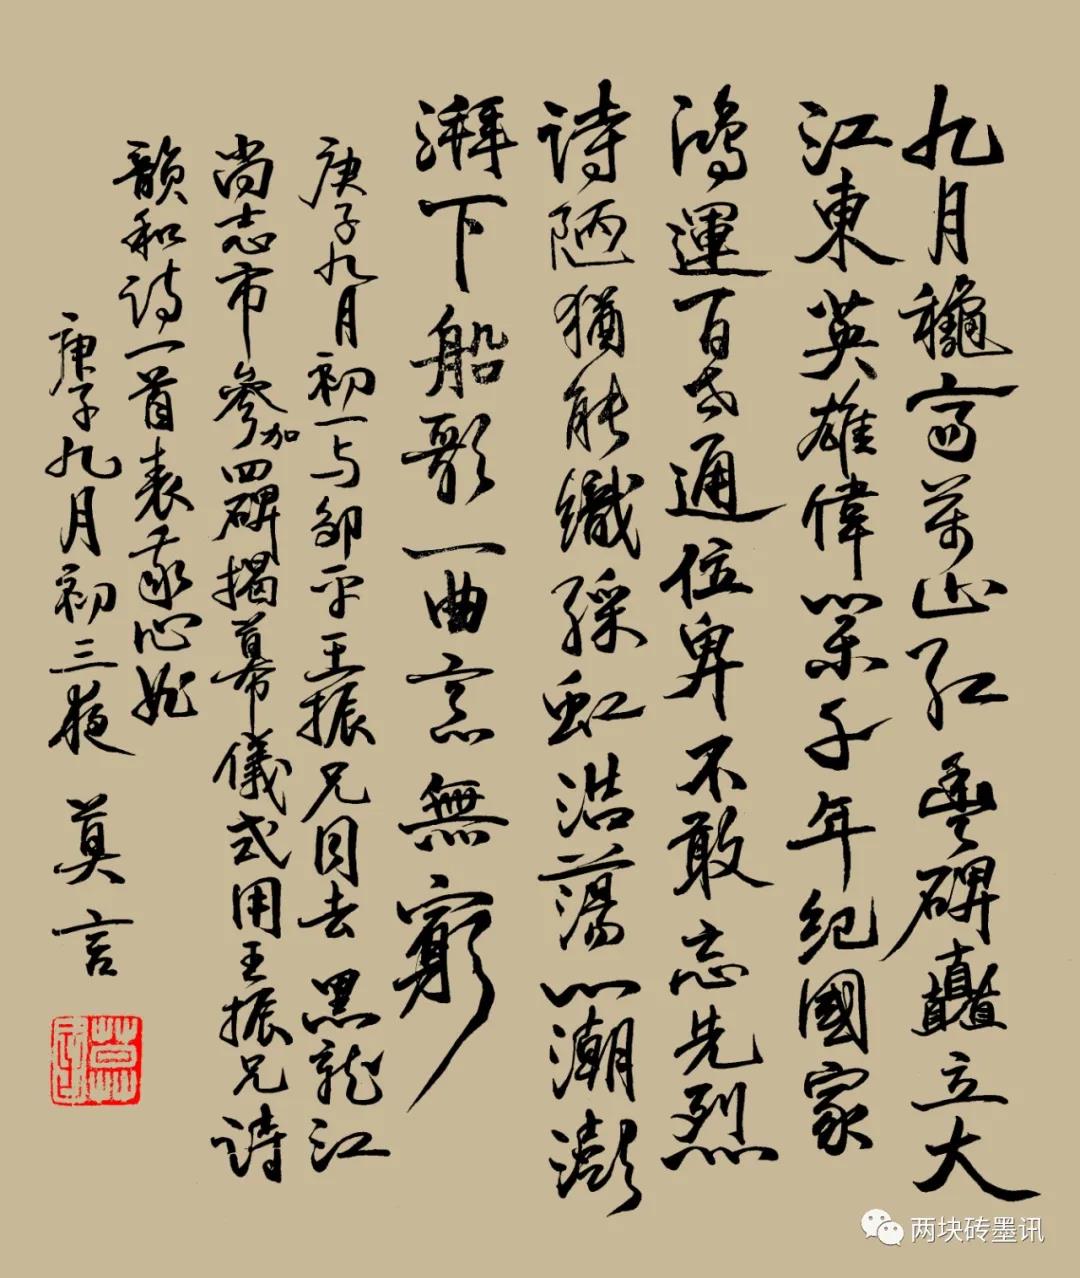 九月龝高萬山红豐碑矗立大
江東英雄偉業千年纪國家
鸿運百世通位卑不敢忘先烈
诗陋猶能織綵虹浩蕩心潮澎
湃下船歌一曲意無窮
庚子九月初一与邹平王振兄同去黑龙江
尚志市參加四碑揭幕儀式用王振兄诗
韻和诗一首表我心
庚子九月初三夜 莫言
两块砖墨讯